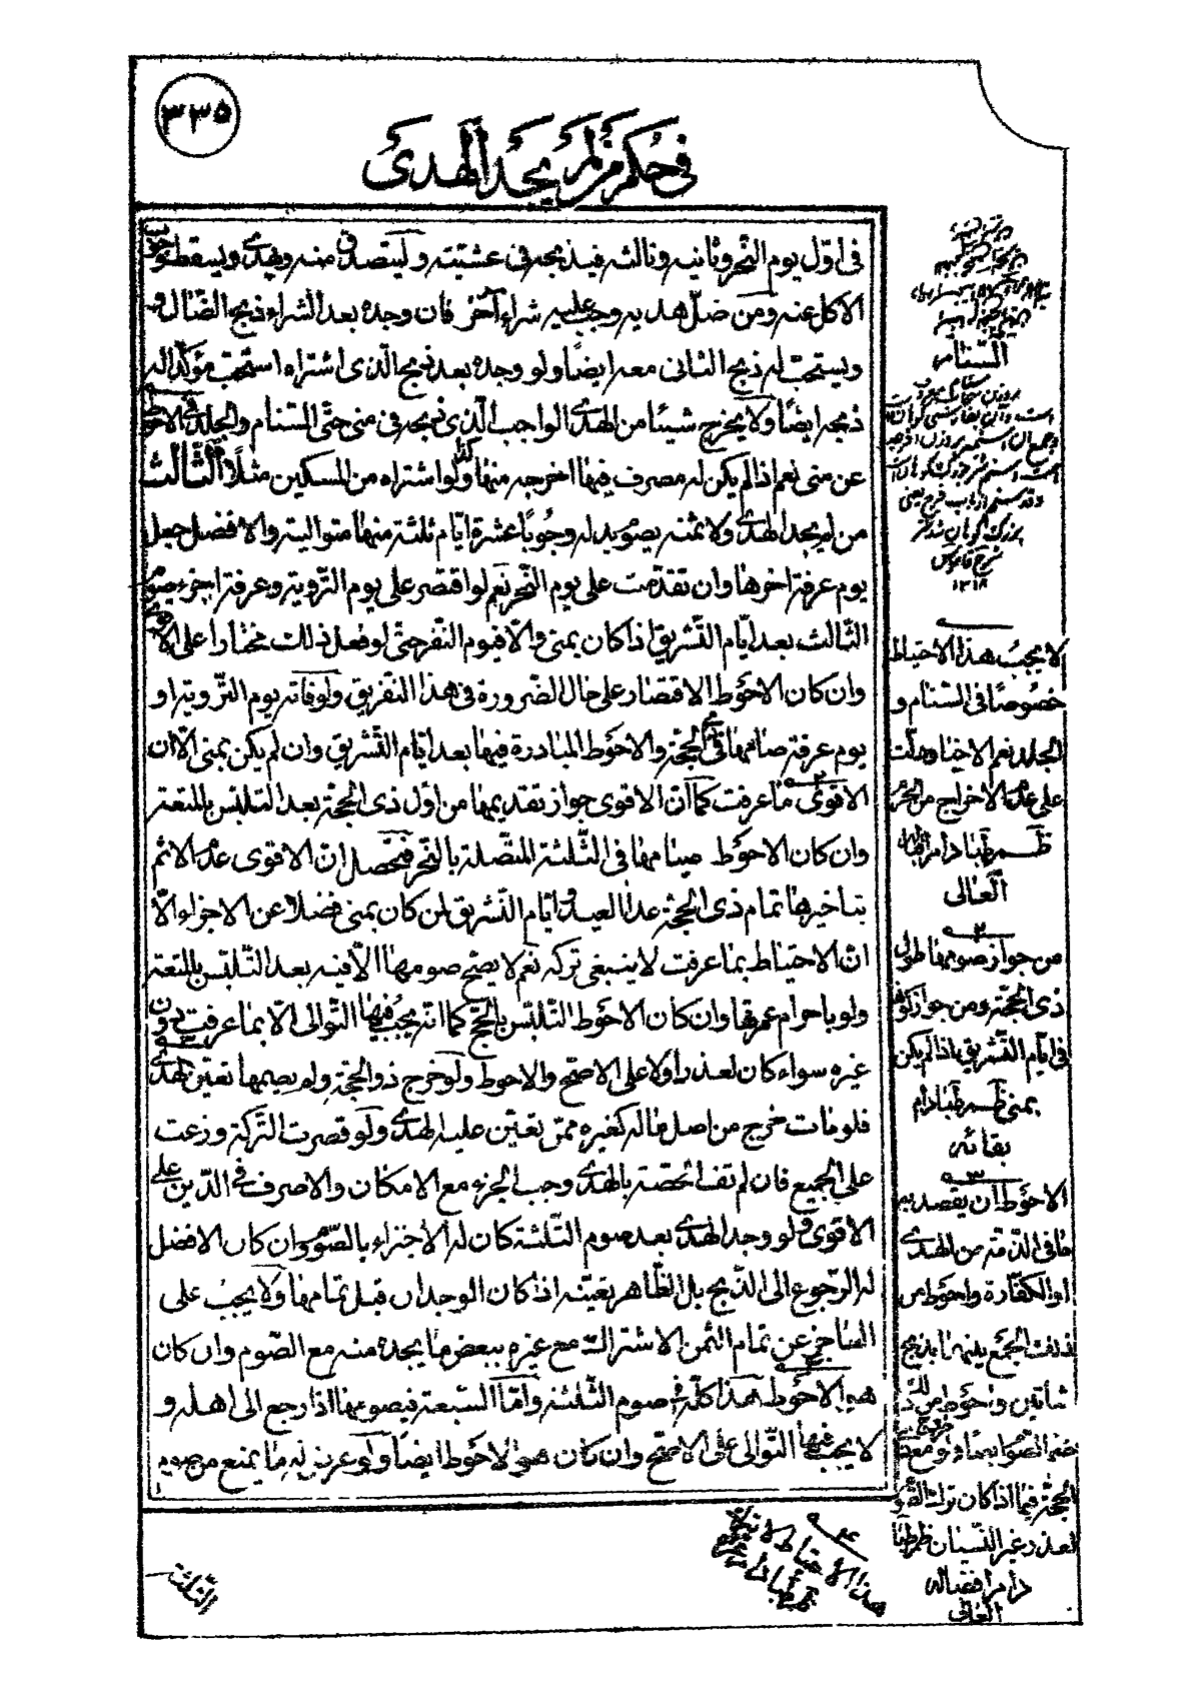 ٣٣٥
في حكم من لم يجد الهدى
في اوّل يوم النّحر وثانيه وثالثه فيذبحه في عشيّته وليتصدّق منه ويهدى ويسقط وجوب
الاكل عنه ومن ضلّ هديه وجب عليه شراء آخر فان وجده بعد الشراء ذبح الضّال
ويستحبّ له ذبح الثانى معه ايضًا ولو وجده بعد ذبح الّذى اشتراه استحبّ مؤكّدا له
ذبحه ايضًا ولا يخرج شيئا من الهدى الواجب الّذى ذبحه في منى حتّى السّنام والجلد في الاحوط
عن منى نعم اذا لم يكن له مصرف فيها اخرجه منها كما لو اشتراه من المسكين مثلًا الثّالث
من لم يجد الهدى ولا ثمنه يصوم بدله وجوبًا عشرة ايّام ثلثة منها متوالية والافضل جعل
يوم عرفة اخرها وان تقدّمت على يوم النّحر نعم لو اقتصر على يوم التّروية وعرفة اجزء صوم
الثّالث بعد ايّام التّشريق اذا كان بمنى والّا فيوم النّفر حتّى لو فعل ذلك مختارا على الاقوى
وان كان الاحوط الاقتصار على حال الضّرورة في هذا التفريق ولو فاته يوم التّروية او
يوم عرفة صامها في ذى الحجّة والاحوط المبادرة فيها بعد ايّام التّشريق وان لم يكن بمنى الّا ان
الاقوى ما عرفت كما انّ الاقوى جواز تقديمها من اوّل ذى الحجّة بعد التلبّس بالمتعة
وان كان الاحوط صيامها في الثّلثة المتّصلة بالنّحر فتحصّل انّ الاقوى عدم الاثم
بتاخيرها تمام ذى الحجّة عدا العيد وايّام التّشريق لمن كان بمنى فضلًا عن الاجزاء الّا
انّ الاحتياط بما عرفت لا ينبغى تركه نعم لا يصحّ صومها الّا فيه بعد التّلبّس بالمتعة
ولو باحرام عمرتها وان كان الاحوط التّلبّس بالحجّ كما انّه يجب فيها التّوالى الّا بما عرفت دون
غيره سواء كان لعذر او لا على الاصحّ والاحوط ولو خرج ذو الحجّة ولم يصمها تعيّن الهدى
فلو مات خرج من اصل ماله كغيره ممّن تعيّن عليه الهدى ولو قصرت التّركة وزعت
على الجميع فان لم تف الحصّة بالهدى وجب الجزء مع الامكان والا صرف في الدّين على
الاقوى ولو وجد الهدى بعد صوم الثّلثة كان له الاجتزاء بالصّوم وان كان الافضل
له الرّجوع الى الذّبح بل الظّاهر تعيّنه اذا كان الوجدان قبل تمامها ولا يجب على
العاجز عن تمام الثّمن الاشتراك مع غيره ببعض ما يجده منه مع الصّوم وان كان
هو الاحوط هذا كلّه في صوم الثّلثة وامّا السّبعة فيصومها اذا رجع الى اهله و
لا يجب فيها التّوالى على الاصحّ وان كان هو الاحوط ايضًا ولو عرض له ما يمنع من صوم
الثّلثة
السّنام
شرح قاموس
١٣١٨
لا يجب هذا الاحتياط
خصوصًا في السّنام و
الجلد نعم الاحتياط هلك
على عدم الاخراج من الحرم
ظم طبا دام افضاله
العالى
٢
من جواز صومها طول
ذى الحجّة ومن جواز كونها
في ايّام التّشريق اذا لم يكن
بمنى ظم طبا دام
بقائه
٣
الاحوط ان يقصد به
ما في الذّمّة من الهدى
او الكفّارة واحوط من
ذلك الجمع بينهما بذبح
شاتين واحوط من ذلك
ضمّ الصّوم ايضًا ولو مع خروج ذى
الحجّة فيما اذا كان ترك الصّوم
لعذر غير النّسيان ظم طبا
دام افضاله
العالى
٤
هذا الاحتياط لا يترك